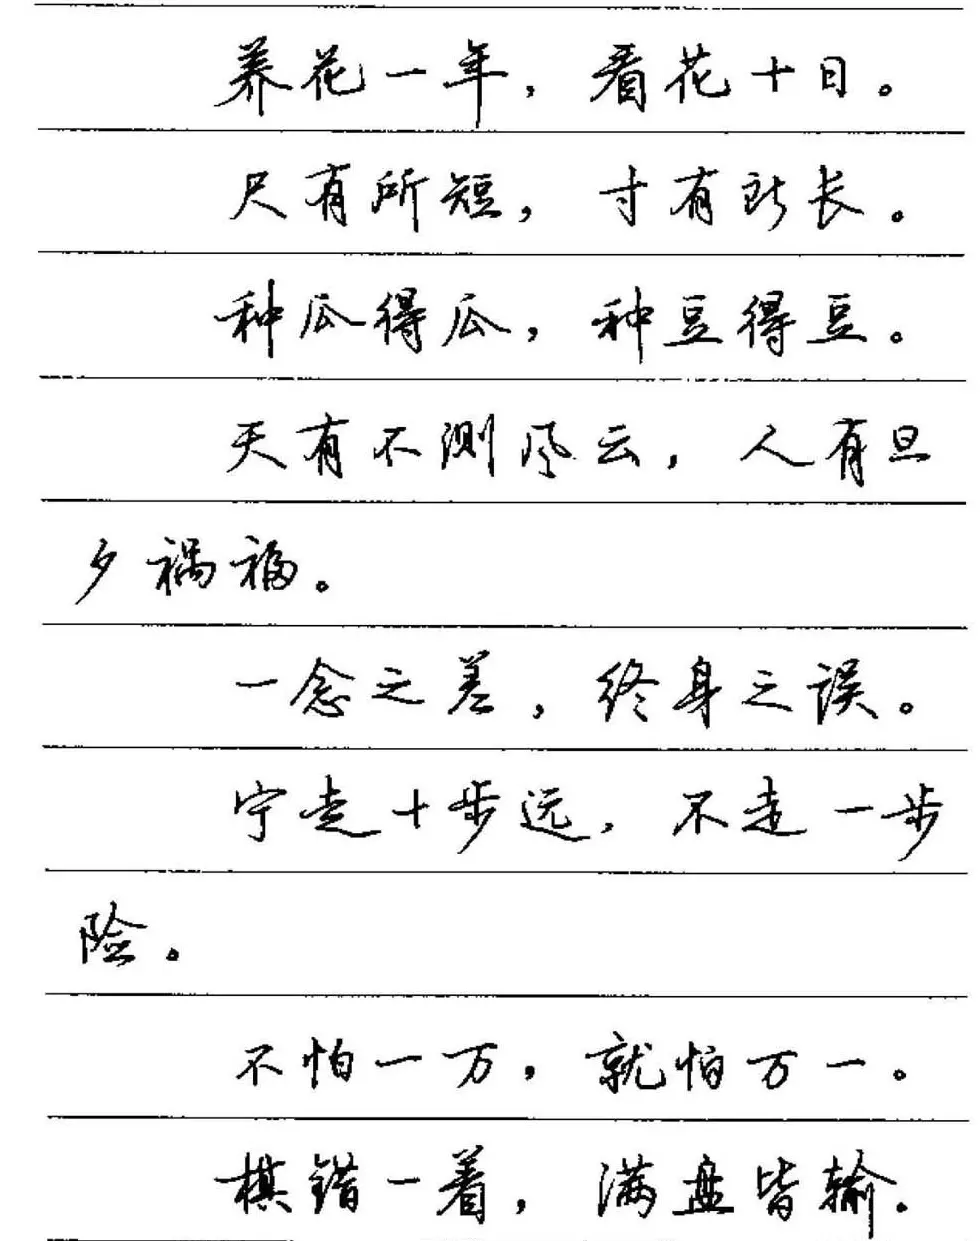 养花一年，看花十日。
尺有所短，寸有所长。
种瓜得瓜，种豆得豆。
天有不测风云，人有旦
夕祸福。
一念之差，终身之误。
宁走十步远，不走一步
险。
不怕一万，就怕万一。
棋错一着，满盘皆输。